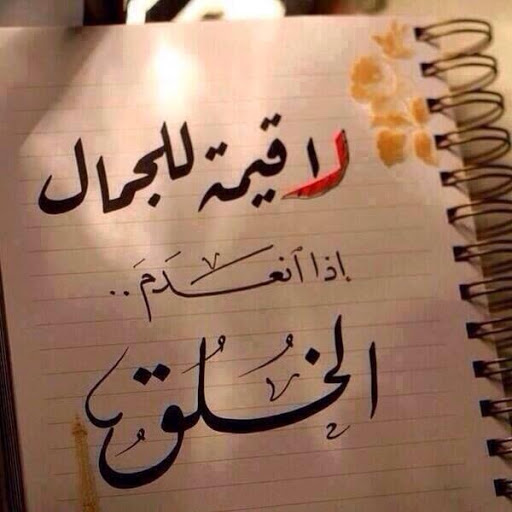 لا قيمة للجمال
إذا انعَدَمَ..
الخُلُق